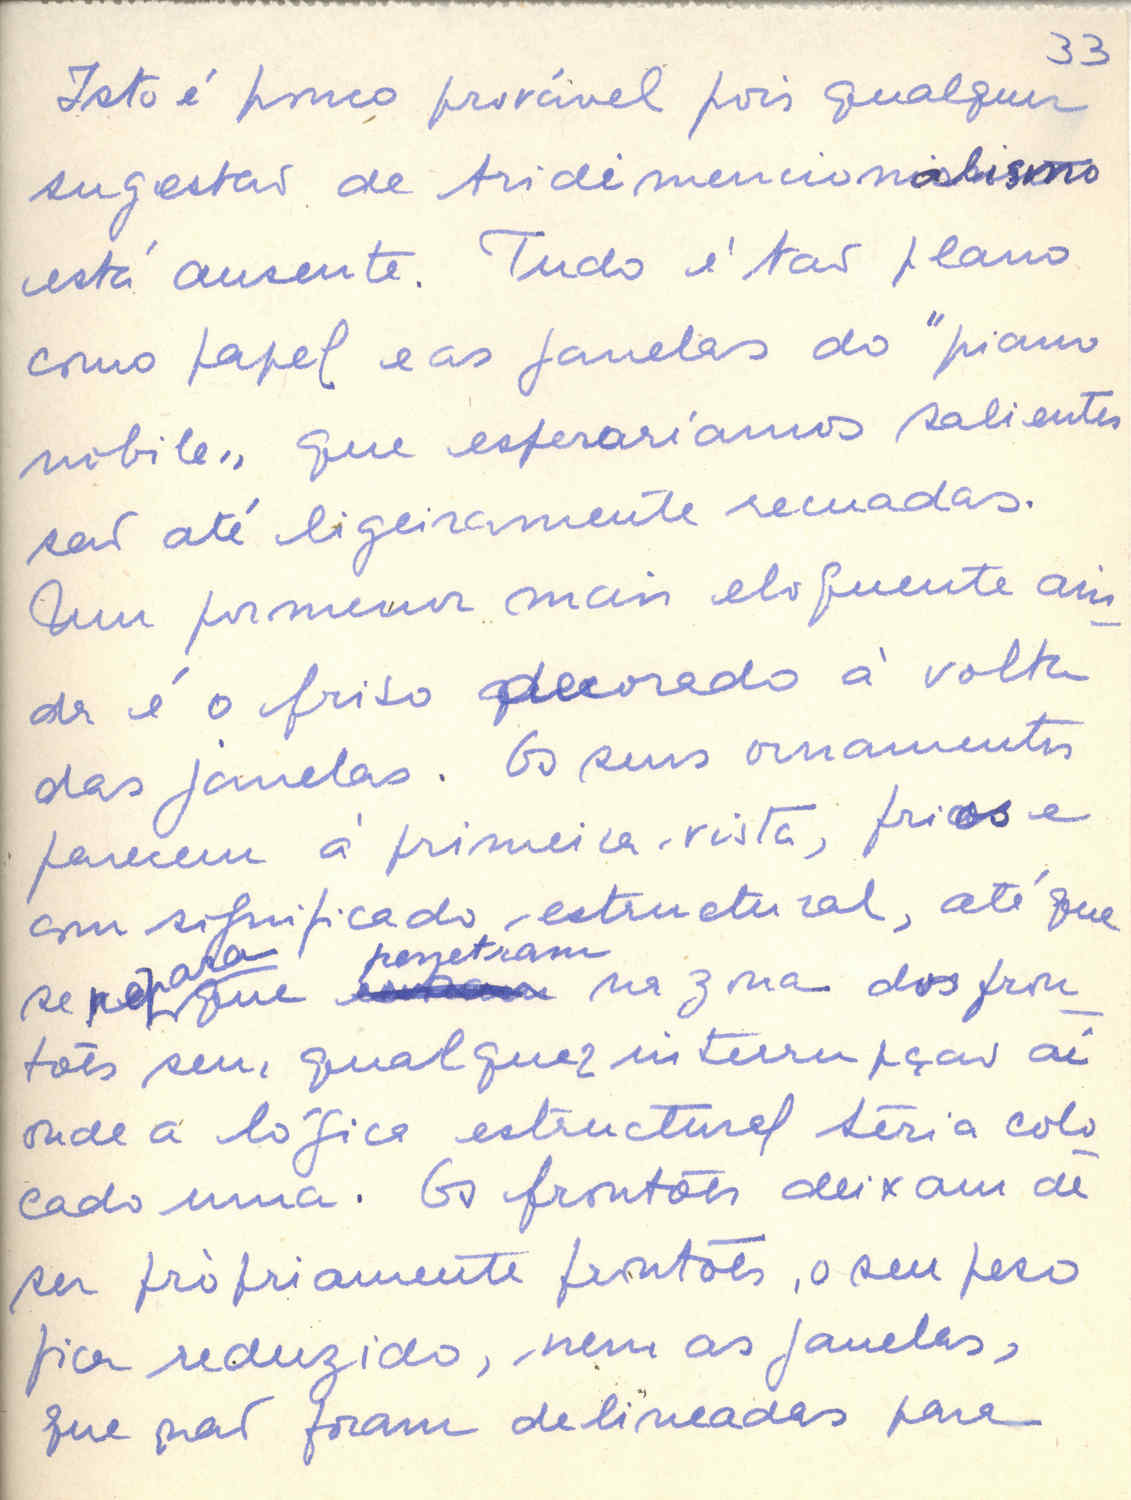 33
Isto é pouco provável pois qualquer
sugestão de tridimencionalismo
está ausente. Tudo é tão plano
como papel e as janelas do "piano
nobile„ que esperaríamos salientes
são até ligeiramente recuadas.
Um pormenor mais eloquente ain
da é o friso decorado à volta
das janelas. Os seus ornamentos
parecem à primeira vista, fricos e
com significado estructural, até que
se repara que penetram na zona dos fron
tões sem qualquer interrupção aí
onde a lógica estructural teria colo
cado uma. Os frontões deixam de
ser pròpriamente frontões, o seu peso
fica reduzido, nem as janelas,
que não foram delineadas para